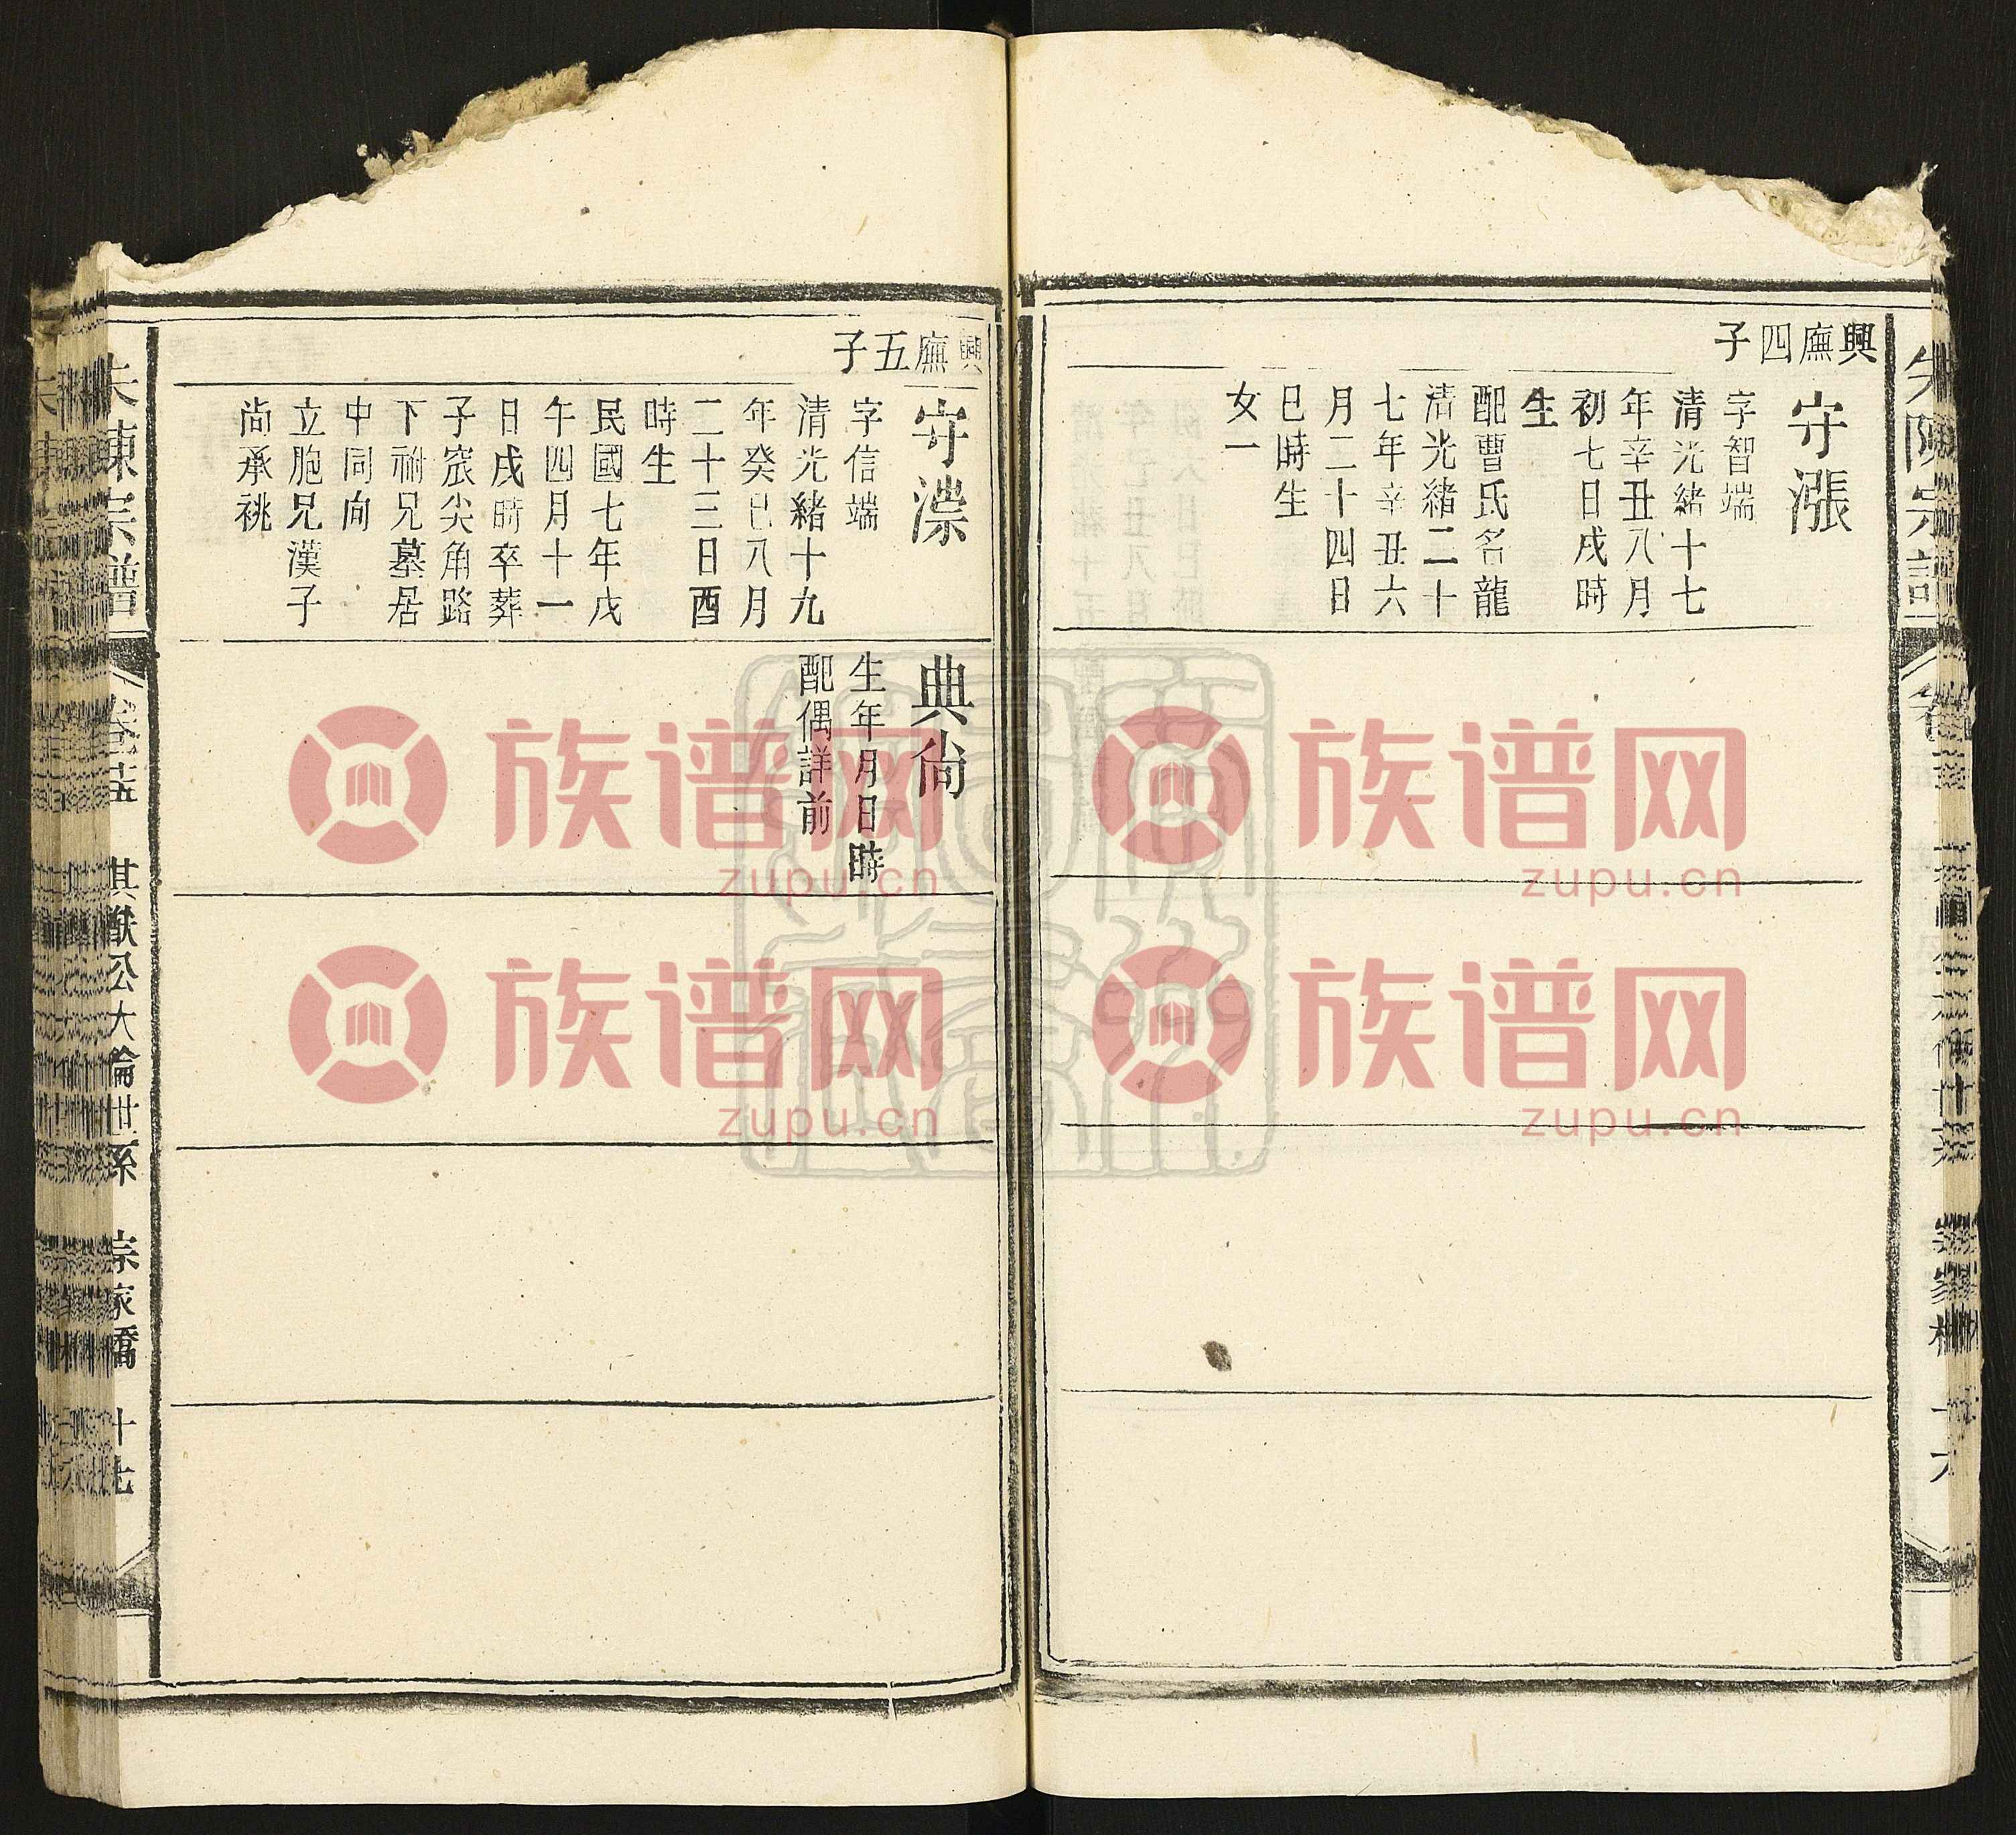 興廡四子
守漲
字智端
清光緒十七
年辛丑八月
初七日戌時
生
配曹氏名龍
清光緒二十
七年辛丑六
月二十四日
巳時生
女一
興廡五子
守漛
字信端
清光緒十九
年癸巳八月
二十三日酉
時生
民國七年戊
午四月十一
日戌時卒葬
子窊尖角路
下祔兄墓居
中同向
立胞兄漢子
尚承祧
典尙
生年月日時
配偶詳前
朱陳宗譜
卷十五
其猷公大倫世系
宗家橋
十七
族谱网
zupu.cn
族谱网
zupu.cn
族谱网
zupu.cn
族谱网
zupu.cn